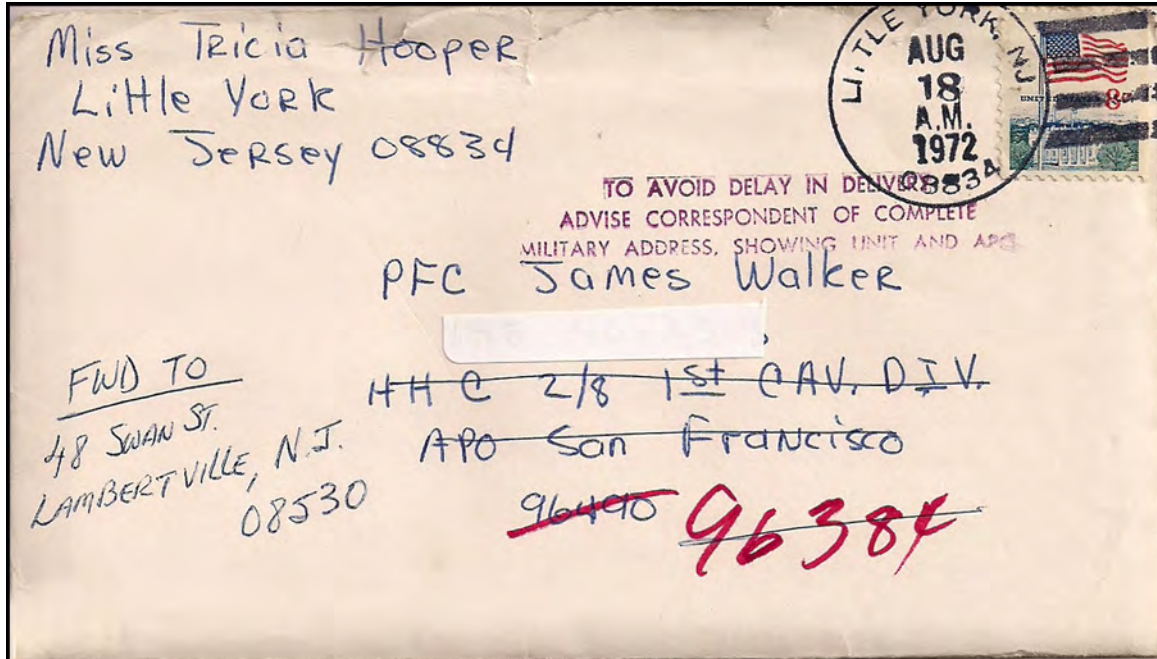 Miss Tricia Hooper
Little York
New Jersey 08834
LITTLE YORK, NJ
AUG
18
A.M.
1972
08834
UNITED STATES
8c
TO AVOID DELAY IN DELIVERY
ADVISE CORRESPONDENT OF COMPLETE
MILITARY ADDRESS, SHOWING UNIT AND APO
PFC James Walker
HHC 2/8 1st CAV. DIV.
APO San Francisco
96490 96384
FWD TO
48 SWAN ST.
LAMBERTVILLE, N.J.
08530